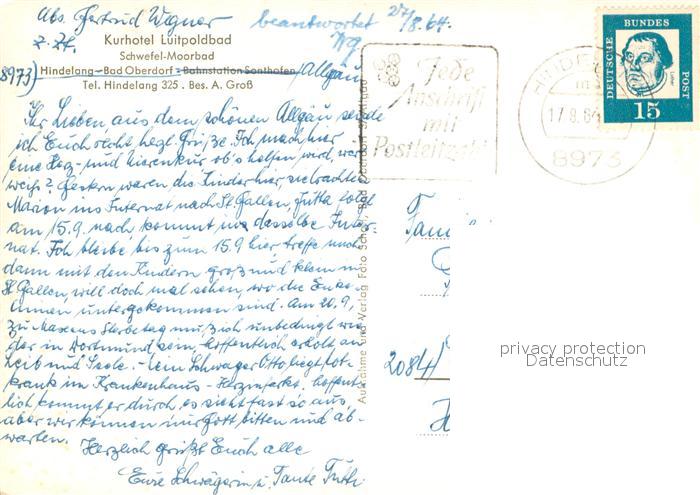 Abs. Gertrud Wegner
z. Zt.
beantwortet 27/8.64.
Kurhotel Luitpoldbad
Schwefel-Moorbad
8973) Hindelang-Bad Oberdorf - Bahnstation Sonthofen/Allgäu
Tel. Hindelang 325 . Bes. A. Groß
Jede
Anschrift
mit
Postleitzahl
DEUTSCHE BUNDES POST
15
8973
Ihr Lieben, aus dem schönen Allgäu sende
ich Euch recht hezl. Grüße. Ich mach hier
eine Herz- und Nierenkur ob's helfen wird, wer
weiß? Gestern waren die Kinder hier, sie brachten
Marion ins Internat nach St. Gallen, Jutta folgt
am 15.9. nach kommt ins dasselbe Inter-
nat. Ich bleibe bis zum 15.9 hier treffe mich
dann mit den Kindern groß und klein in
St. Gallen, will doch mal sehen, wo die Enke-
linnen untergekommen sind. Am 20.9,
zu Sterbetag muß ich unbedingt wie-
der in Dortmund sein, hoffentlich erholt an
Leib und Seele. - Mein Schwager Otto liegt tot-
krank im Krankenhaus - Herzinfarkt. hoffent-
lich kommt er durch, es sieht fast so aus,
aber wir können nur Gott bitten und ab-
warten.
Herzlich grüßt Euch alle
Eure Schwägerin u. Tante
Aufnahme und Verlag Foto
2084)
privacy protection
Datenschutz